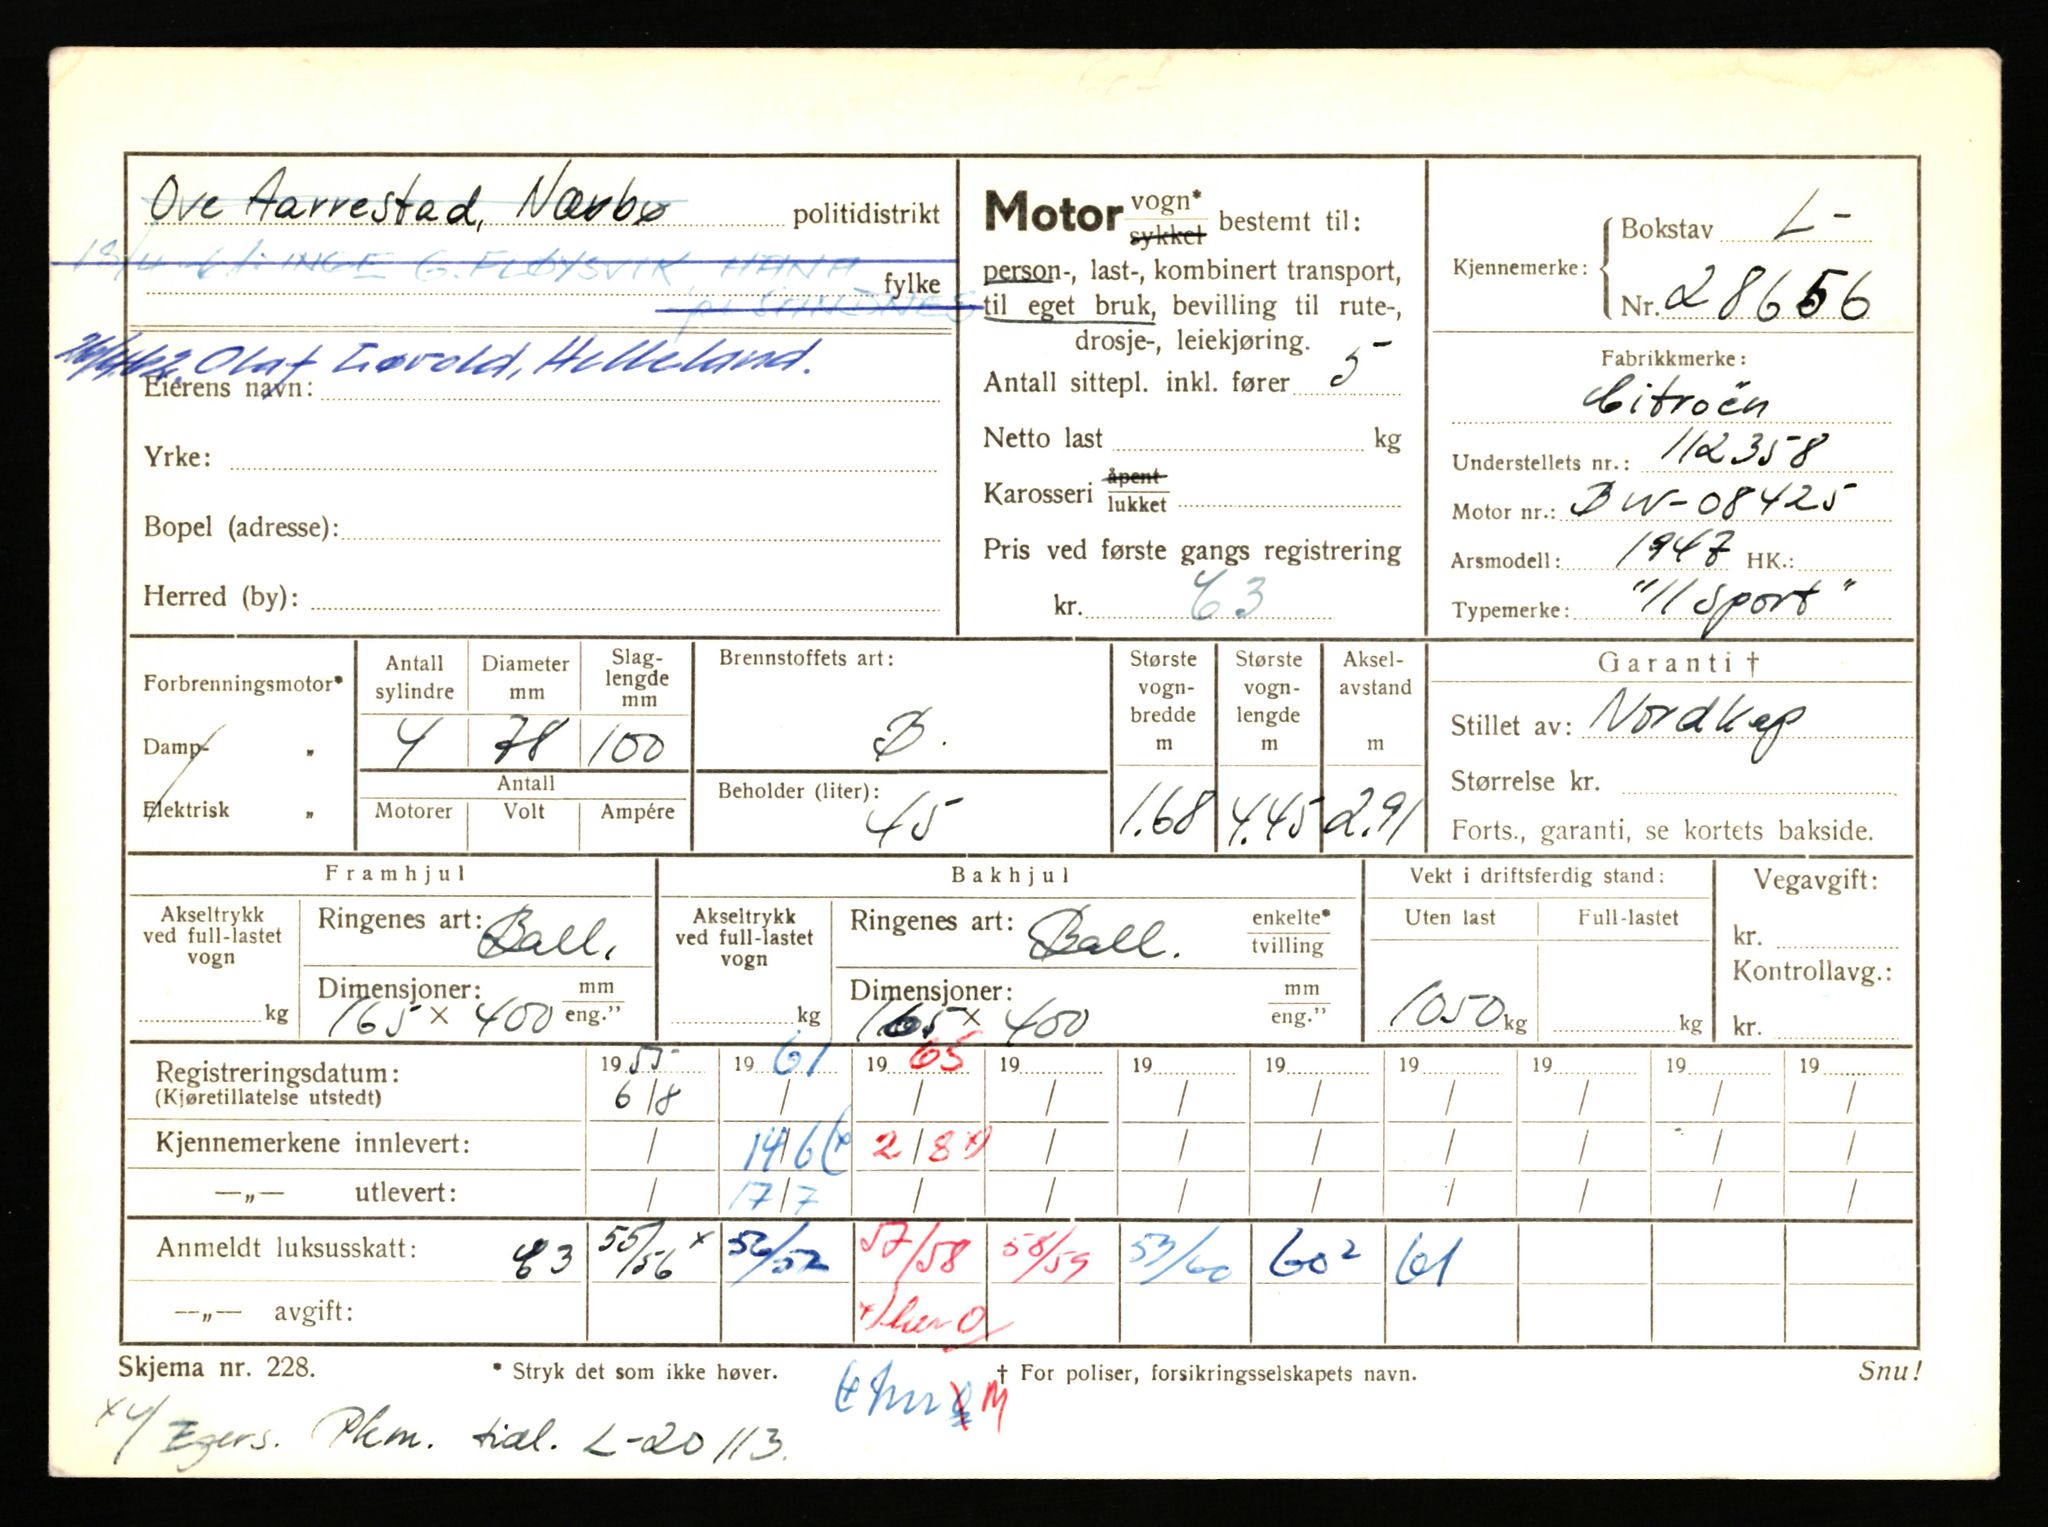 Ove Aarrestad, Nærbø politidistrikt
INGE G. FLØYSVIK, HANA
fylke
SANDNES
Olaf Helleland.
Eierens navn:
Yrke:
Bopel (adresse):
Herred (by):
Motor vogn* sykkel bestemt til:
person-, last-, kombinert transport,
til eget bruk, bevilling til rute-,
drosje-, leiekjøring.
Antall sittepl. inkl. fører 5
Netto last kg
Karosseri åpent lukket
Pris ved første gangs registrering
kr. 63
Kjennemerke: Bokstav L-
Nr. 28656
Fabrikkmerke:
Citroën
Understellets nr.: 112358
Motor nr.: BW-08425
Arsmodell: 1947 HK.:
Typemerke: "11 sport"
Forbrenningsmotor*
Damp- „
Elektrisk „
Antall sylindre
Diameter mm
Slag-lengde mm
4 78 100
Antall
Motorer Volt Ampére
Brennstoffets art:
B.
Beholder (liter):
45
Største vogn-bredde m
1.68
Største vogn-lengde m
4.45
Aksel-avstand m
2.91
Garanti †
Stillet av: Nordkap
Størrelse kr.
Forts., garanti, se kortets bakside.
Framhjul
Akseltrykk ved full-lastet vogn
kg
Ringenes art: Ball.
Dimensjoner: mm eng."
165 x 400
Bakhjul
Akseltrykk ved full-lastet vogn
kg
Ringenes art: Ball. enkelte* tvilling
Dimensjoner: mm eng."
165 x 400
Vekt i driftsferdig stand:
Uten last Full-lastet
1050 kg kg
Vegavgift:
kr.
Kontrollavg.:
kr.
Registreringsdatum: 1955 1961 1965 19 19 19 19 19 19 19
(Kjøretillatelse utstedt) 6/8 / / / / / / / / /
Kjennemerkene innlevert: / 14/6 (x 2/8 x) / / / / / / /
—„— utlevert: / 17/7 / / / / / / / /
Anmeldt luksusskatt: 63 55/56 x 56/57 57/58 58/59 59/60 60² 61
—„— avgift:
Skjema nr. 228. * Stryk det som ikke høver. † For poliser, forsikringsselskapets navn. Snu!
M
x4/ Egers. Pkm. tidl. L-20113.